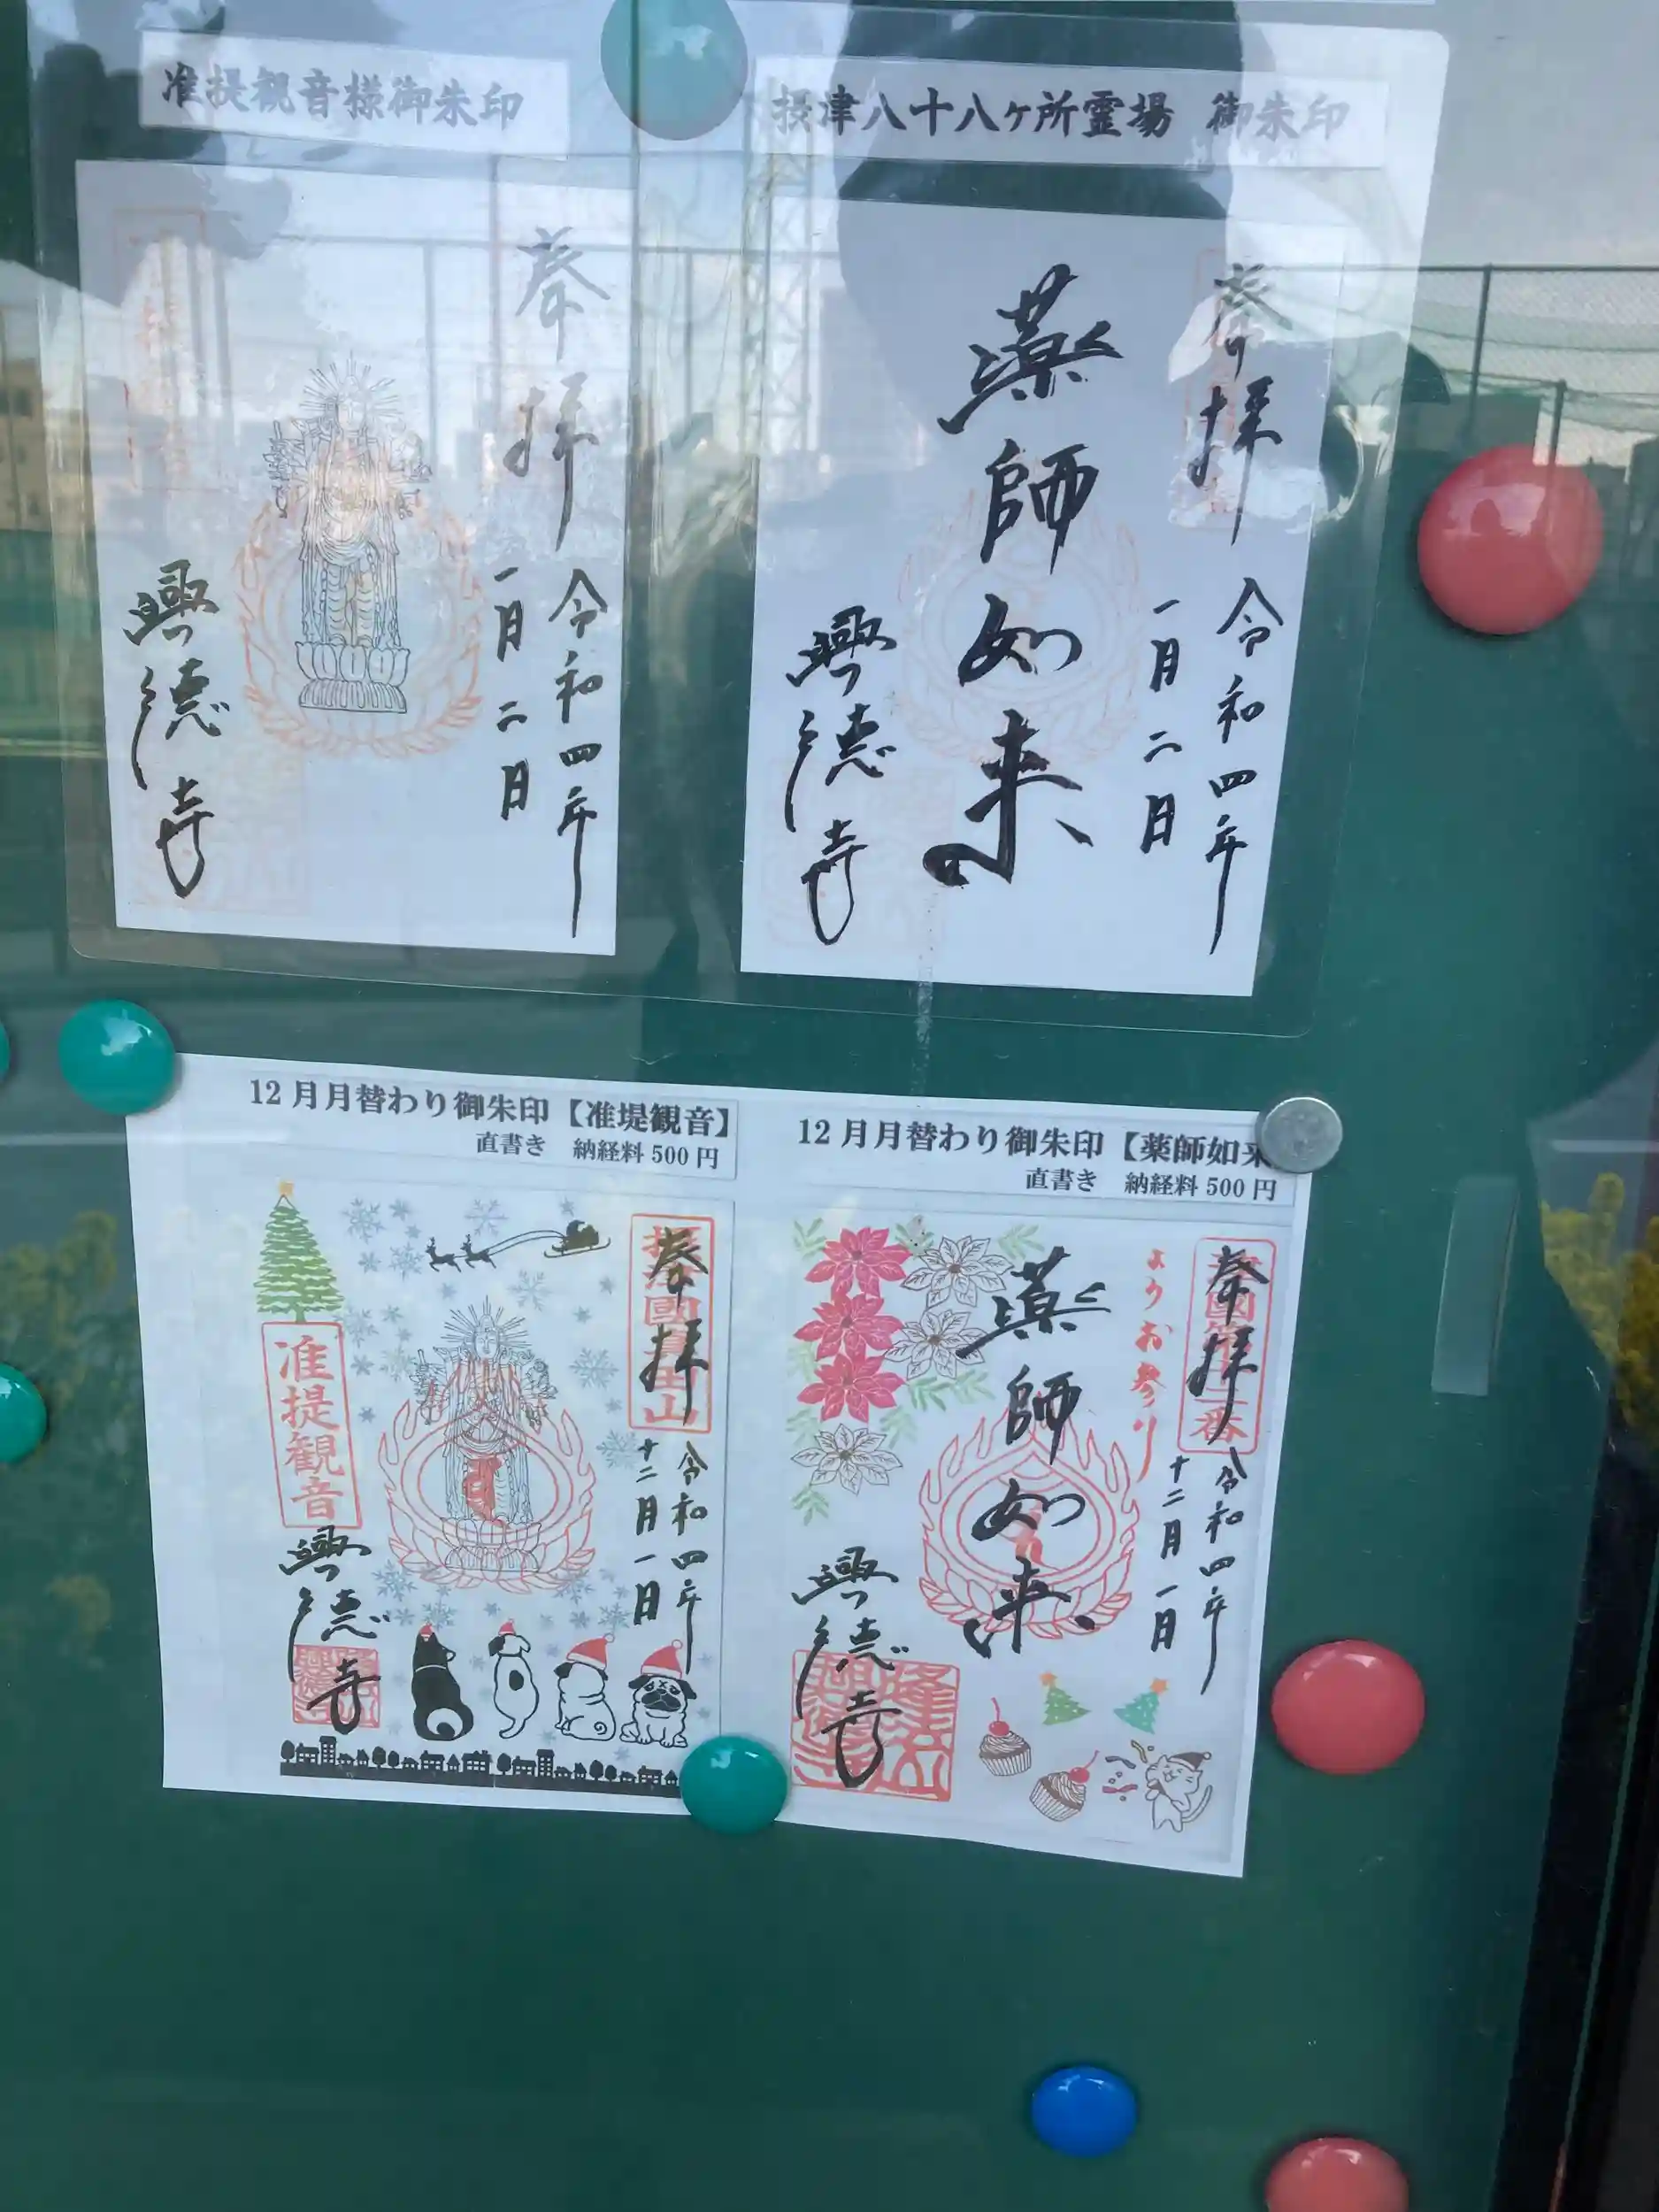 准提観音様御朱印
奉拝
令和四年
一月二日
興徳寺
摂津八十八ヶ所霊場 御朱印
奉拝
令和四年
一月二日
薬師如来
興徳寺
12月月替わり御朱印【准堤観音】
直書き 納経料500円
奉拝
令和四年
十二月一日
准提観音
興徳寺
12月月替わり御朱印【薬師如来
直書き 納経料500円
奉拝
令和四年
十二月一日
ようお参り
薬師如来
興徳寺